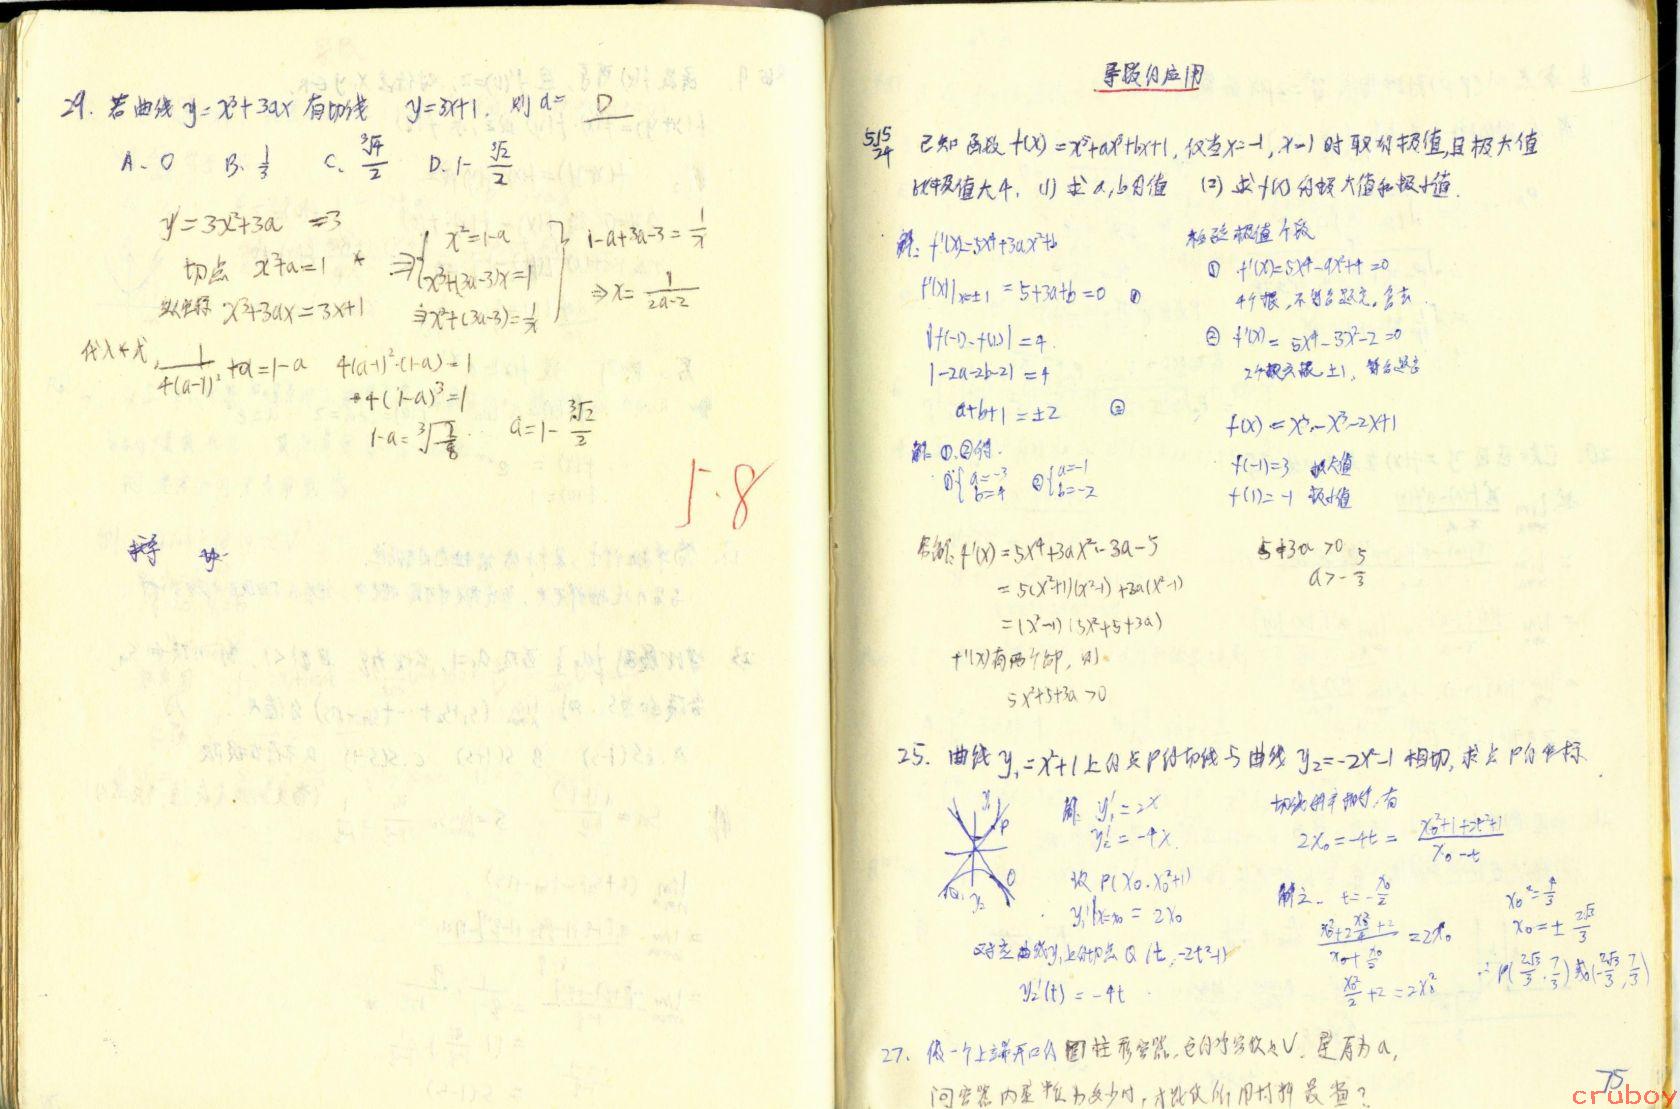 29. 若曲线 y=x³+3ax 有切线 y=3x+1. 则 a= D
A. 0 B. 1/3 C. ∛4/2 D. 1-∛2/2
y'=3x²+3a =3
切点 x²+a=1 *
x³+3ax=3x+1
⇒{ x²=1-a
x³+(3a-3)x=1
⇒x²+(3a-3)=1/x
1-a+3a-3=1/x
⇒x=1/(2a-2)
代入*式, 1/(4(a-1)²)+a=1-a 4(a-1)²·(1-a)=1
4(1-a)³=1
1-a=∛(2/8) a=1-∛2/2
5.8
导数的应用
515
24 已知函数 f(x)=x⁵+ax³+bx+1, 仅当x=-1, x=1时取得极值,且极大值
比极值大4. (1) 求a,b的值 (2) 求f(x)的极大值和极小值.
解: f'(x)=5x⁴+3ax²+b
f'(x)|x=±1 =5+3a+b=0 ①
|f(-1)-f(1)|=4.
|-2a-2b-2|=4
a+b+1=±2 ②
解①,②得.
①{a=-3 b=4 ②{a=-1 b=-2
检验极值个数
① f'(x)=5x⁴-9x²+4=0
4个根, 不符合题意. 舍去.
② f'(x)=5x⁴-3x²-2=0
2个实根±1, 符合题意
f(x)=x⁵-x³-2x+1
f(-1)=3 极大值
f(1)=-1 极小值
f'(x)=5x⁴+3ax²-3a-5
=5(x²+1)(x²-1)+3a(x²-1)
=(x²-1)(5x²+5+3a)
f'(x)有两个, 则
5x²+5+3a>0
5+3a>0
a>-5/3
25. 曲线 y₁=x²+1上的点P的切线与曲线 y₂=-2x²-1 相切, 求点P的坐标.
y₁ P Q y₂
解: y₁'=2x
y₂'=-4x.
设 P(x₀, x₀²+1)
y₁'|x=x₀ =2x₀
上的切点Q(t,-2t²-1)
y₂'(t)=-4t
切线斜率相等,有
2x₀=-4t=(x₀²+1+2t²+1)/(x₀-t)
解之. t=-x₀/2
(x₀²+2x₀²/4+2)/(x₀+x₀/2)=2x₀
x₀²=4/3
x₀=±2√3/3
∴P(2√3/3, 7/3)或(-2√3/3, 7/3)
27. 做一个上端开口的圆柱形容器, 它的净容积为V, 壁厚为a,
问容器内壁半径为多少时, 才能使所用材料最省?
75
cruboy